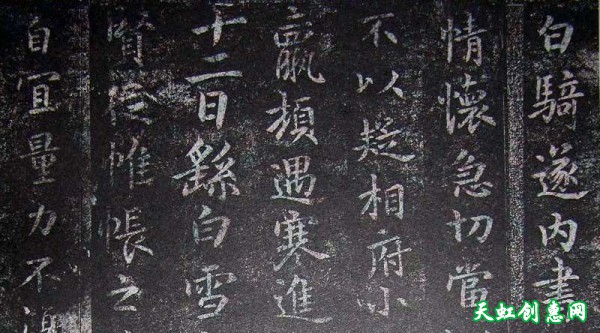 白騎遂内書
情懷急切當
不以疑相府小
羸頓遇寒進
十二日繇白雪
帷帳之
自宜量力不
天虹创惠网